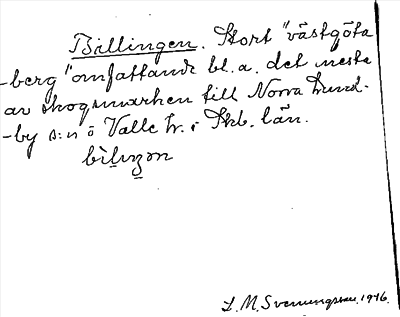 Billingen. Stort "västgöta
-berg" omfattande bl. a. det mesta
av skogsmarken till Norra Lund-
-by s:n ö Valle hr. i Skb. län.
bìliŋən
L. M. Svenungsson. 1946.